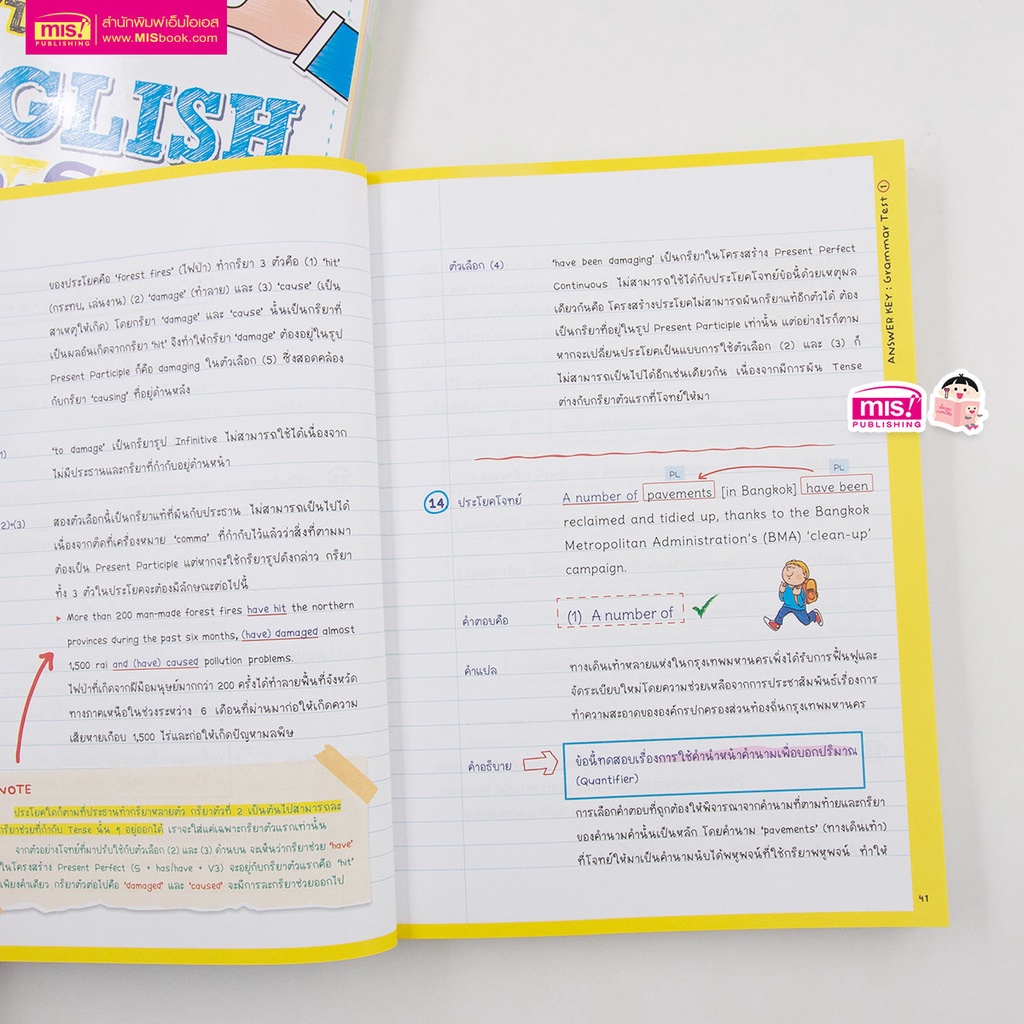 mis!
PUBLISHING
สำนักพิมพ์เอ็มไอเอส
www.MISbook.com
GLISH
ของประโยคคือ 'forest fires' (ไฟป่า) ทำกริยา 3 ตัวคือ (1) 'hit'
(กระทบ, เล่นงาน) (2) 'damage' (ทำลาย) และ (3) 'cause' (เป็น
สาเหตุให้เกิด) โดยกริยา 'damage' และ 'cause' นั้นเป็นกริยาที่
เป็นผลอันเกิดจากกริยา 'hit' จึงทำให้กริยา 'damage' ต้องอยู่ในรูป
Present Participle ก็คือ damaging ในตัวเลือก (5) ซึ่งสอดคล้อง
กับกริยา 'causing' ที่อยู่ด้านหลัง
1)
'to damage' เป็นกริยารูป Infinitive ไม่สามารถใช้ได้เนื่องจาก
ไม่มีประธานและกริยาที่กำกับอยู่ด้านหน้า
2)+(3)
สองตัวเลือกนี้เป็นกริยาแท้ที่ผันกับประธาน ไม่สามารถเป็นไปได้
เนื่องจากติดที่เครื่องหมาย 'comma' ที่กำกับไว้แล้วว่าสิ่งที่ตามมา
ต้องเป็น Present Participle แต่หากจะใช้กริยารูปดังกล่าว กริยา
ทั้ง 3 ตัวในประโยคจะต้องมีลักษณะดังต่อไปนี้
▸ More than 200 man-made forest fires have hit the northern
provinces during the past six months, (have) damaged almost
1,500 rai and (have) caused pollution problems.
ไฟป่าที่เกิดจากฝีมือมนุษย์มากกว่า 200 ครั้งได้ทำลายพื้นที่จังหวัด
ทางภาคเหนือในช่วงระหว่าง 6 เดือนที่ผ่านมาก่อให้เกิดความ
เสียหายเกือบ 1,500 ไร่และก่อให้เกิดปัญหามลพิษ
NOTE
ประโยคใดก็ตามที่ประธานทำกริยาหลายตัว กริยาตัวที่ 2 เป็นต้นไปสามารถละ
กริยาช่วยที่กำกับ Tense นั้น ๆ อยู่ออกได้ เราจะใส่แค่เฉพาะกริยาตัวแรกเท่านั้น
จากตัวอย่างโจทย์ที่มาปรับใช้กับตัวเลือก (2) และ (3) ด้านบน จะเห็นว่ากริยาช่วย 'have'
ในโครงสร้าง Present Perfect (S + has/have + V3) จะอยู่กับกริยาตัวแรกคือ 'hit'
เพียงคำเดียว กริยาตัวต่อไปคือ 'damaged' และ 'caused' จะมีการละกริยาช่วยออกไป
ตัวเลือก (4)
'have been damaging' เป็นกริยาในโครงสร้าง Present Perfect
Continuous ไม่สามารถใช้ได้กับประโยคโจทย์ข้อนี้ด้วยเหตุผล
เดียวกันคือ โครงสร้างประโยคไม่สามารถผันกริยาแท้อีกตัวได้ ต้อง
เป็นกริยาที่อยู่ในรูป Present Participle เท่านั้น แต่อย่างไรก็ตาม
หากจะเปลี่ยนประโยคเป็นแบบการใช้ตัวเลือก (2) และ (3) ก็
ไม่สามารถเป็นไปได้อีกเช่นเดียวกัน เนื่องจากมีการผัน Tense
ต่างกับกริยาตัวแรกที่โจทย์ให้มา
PL
PL
14 ประโยคโจทย์
A number of pavements [in Bangkok] have been
reclaimed and tidied up, thanks to the Bangkok
Metropolitan Administration's (BMA) 'clean-up'
campaign.
คำตอบคือ
(1) A number of
คำแปล
ทางเดินเท้าหลายแห่งในกรุงเทพมหานครเพิ่งได้รับการฟื้นฟูและ
จัดระเบียบใหม่โดยความช่วยเหลือจากการประชาสัมพันธ์เรื่องการ
ทำความสะอาดขององค์กรปกครองส่วนท้องถิ่นกรุงเทพมหานคร
คำอธิบาย
ข้อนี้ทดสอบเรื่องการใช้คำนำหน้าคำนามเพื่อบอกปริมาณ
(Quantifier)
การเลือกคำตอบที่ถูกต้องให้พิจารณาจากคำนามที่ตามท้ายและกริยา
ของคำนามคำนั้นเป็นหลัก โดยคำนาม 'pavements' (ทางเดินเท้า)
ที่โจทย์ให้มาเป็นคำนามนับได้พหูพจน์ที่ใช้กริยาพหูพจน์ ทำให้
41
ANSWER KEY : Grammar Test 1
mis!
PUBLISHING